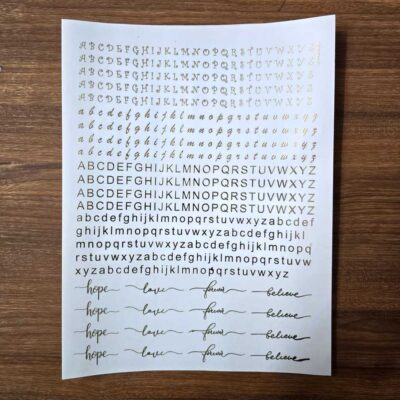 A B C D E F G H I J K L M N O P Q R S T U V W X Y Z
A B C D E F G H I J K L M N O P Q R S T U V W X Y Z
A B C D E F G H I J K L M N O P Q R S T U V W X Y Z
A B C D E F G H I J K L M N O P Q R S T U V W X Y Z
A B C D E F G H I J K L M N O P Q R S T U V W X Y Z
a b c d e f g h i j k l m n o p q r s t u v w x y z
a b c d e f g h i j k l m n o p q r s t u v w x y z
a b c d e f g h i j k l m n o p q r s t u v w x y z
a b c d e f g h i j k l m n o p q r s t u v w x y z
ABCDEFGHIJKLMNOPQRSTUVWXYZ
ABCDEFGHIJKLMNOPQRSTUVWXYZ
ABCDEFGHIJKLMNOPQRSTUVWXYZ
ABCDEFGHIJKLMNOPQRSTUVWXYZ
abcdefghijklmnopqrstuvwxyzabcdef
ghijklmnopqrstuvwxyzabcdefghijkl
mnopqrstuvwxyzabcdefghijklmnopq
rstuvwxyzabcdefghijklmnopqrstuvw
xyzabcdefghijklmnopqrstuvwxyz
hope love favor believe
hope love favor believe
hope love favor believe
hope love favor believe